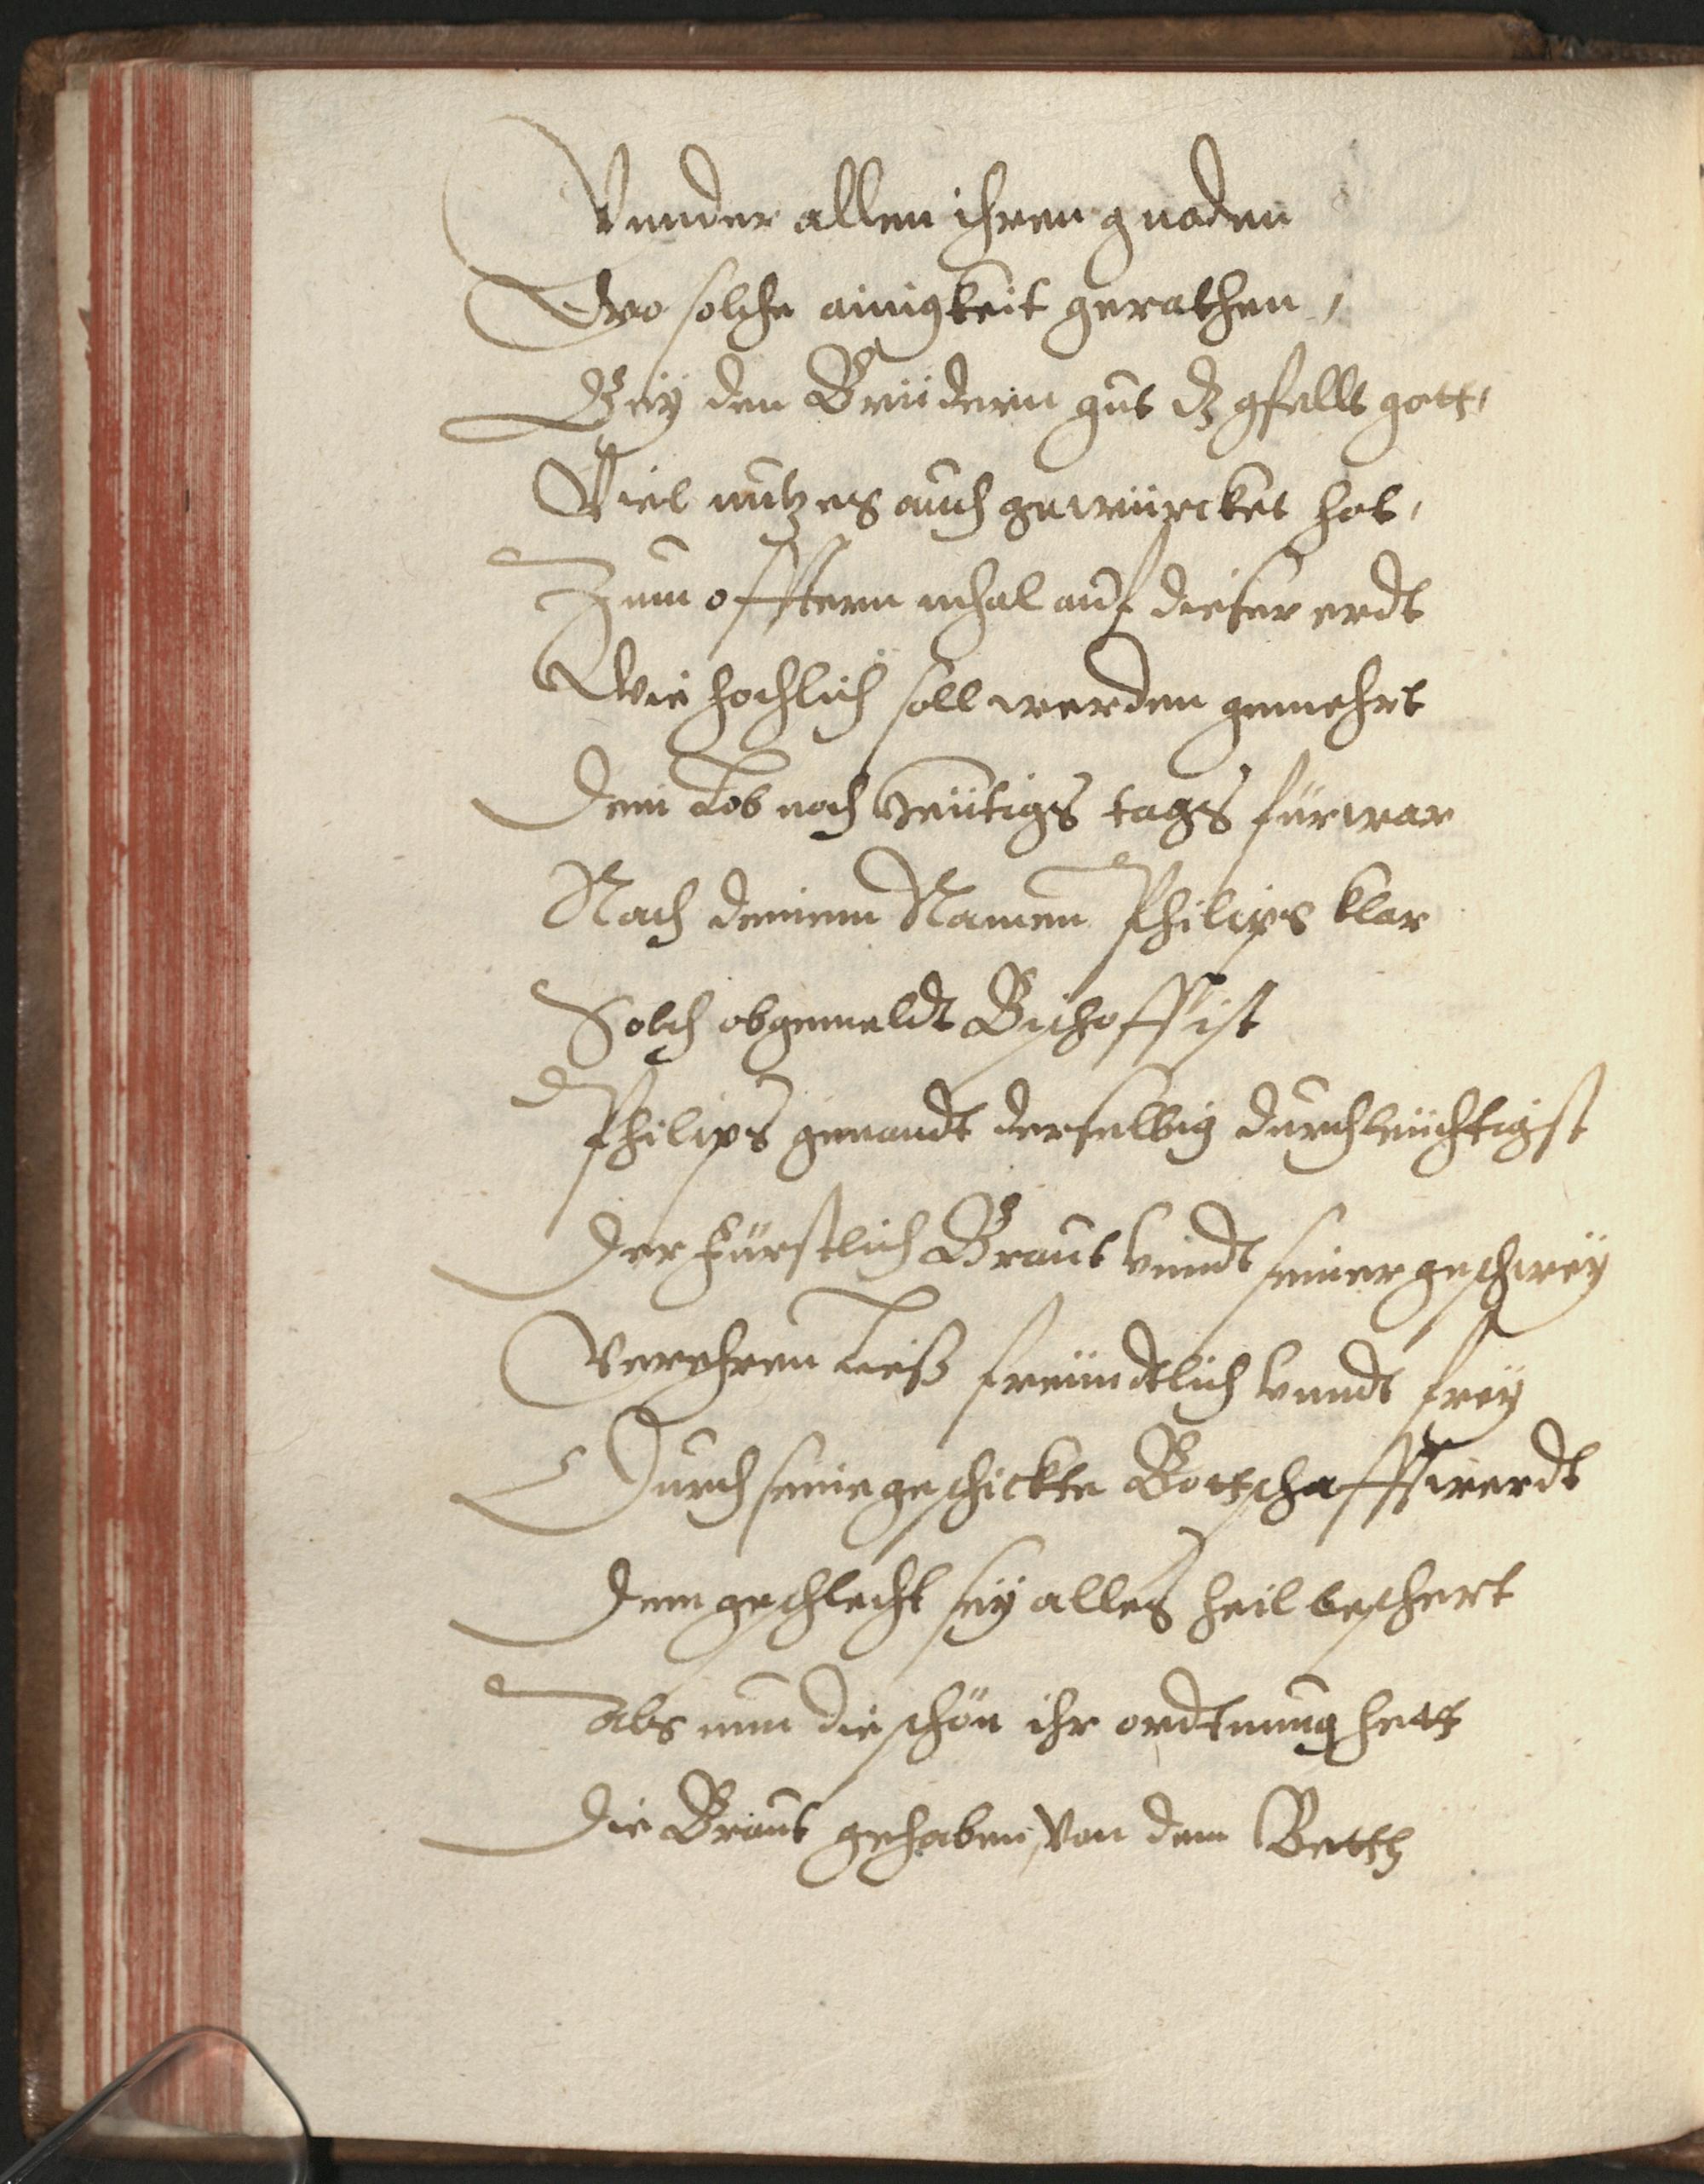 Vnnder allen ihren gnaden
Wo solche ainigkeit gerathen,
Beÿ den Brüedern gut dz gfellt gott,
Viel nutzes auch gewürcket hat,
Zum offtern mhal auf dieser erdt
Wie hochlich soll werden gemehrt
Dein Lob noch Heütigs tags fürwar
Nach deinem Namen Philips klar
Solch obgemeldt Bischoff ist
Philips genandt derselbig durchleüchtigist
Der Fürstlich Braut vnndt seiner geschweÿ
Verehren Ließ freündtlich vnndt freÿ
Durch seine geschickte Bottschafft werdt
Dem geschlecht seÿ alles heil beschert
Als nun die schön ihr ordtnung hett
Die Braut gehaben, von dem Betth